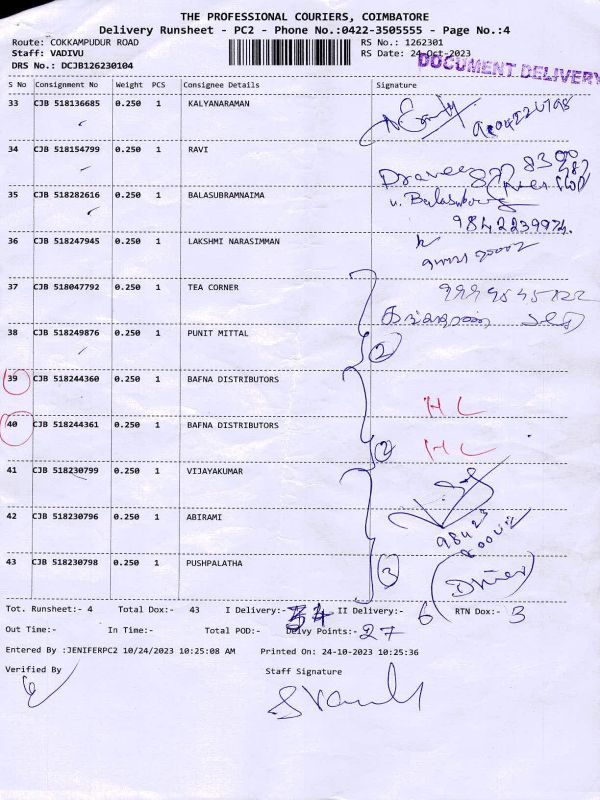 THE PROFESSIONAL COURIERS, COIMBATORE
Delivery Runsheet - PC2 - Phone No.:0422-3505555 - Page No.:4
Route: COKKAMPUDUR ROAD RS No.: 1262301
Staff: VADIVU RS Date: 24-Oct-2023
DRS No.: DCJB126230104 DOCUMENT DELIVERY
S No Consignment No Weight PCS Consignee Details Signature
33 CJB 518136685 0.250 1 KALYANARAMAN
34 CJB 518154799 0.250 1 RAVI
35 CJB 518282616 0.250 1 BALASUBRAMNAIMA
9842239974.
36 CJB 518247945 0.250 1 LAKSHMI NARASIMMAN
37 CJB 518047792 0.250 1 TEA CORNER
38 CJB 518249876 0.250 1 PUNIT MITTAL
2
39 CJB 518244360 0.250 1 BAFNA DISTRIBUTORS HL
40 CJB 518244361 0.250 1 BAFNA DISTRIBUTORS 2 HL
41 CJB 518230799 0.250 1 VIJAYAKUMAR
42 CJB 518230796 0.250 1 ABIRAMI
43 CJB 518230798 0.250 1 PUSHPALATHA 3
Tot. Runsheet:- 4 Total Dox:- 43 I Delivery:- 34 II Delivery:- 6 RTN Dox:- 3
Out Time:- In Time:- Total POD:- Delvy Points:- 27
Entered By :JENIFERPC2 10/24/2023 10:25:08 AM Printed On: 24-10-2023 10:25:36
Verified By Staff Signature